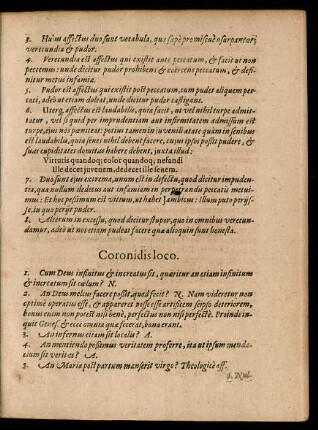 3. Huius affectus duo sunt vocabula, quæ sæpè promiscuè usurpantur;
verecundia & pudor.
4. Verecundia est affectus qui existit ante peccatum, & facit ut non
peccemus: unde dicitur pudor prohibens & coërcens peccatum, & defi-
nitur metus infamiæ.
5. Pudor est affectus qui existit post peccatum, cum pudet aliquem pec-
cati, adeò ut etiam doleat, unde dicitur pudor castigans.
6. Uterq; affectus est laudabilis, quia facit, ut vel nihil turpe admit-
tatur, vel si quid per imprudentiam aut infirmitatem admissum est
turpe, ejus nos pœniteat: potius tamen in juvenili ætate quàm in senibus
est laudabilis, quia senes nihil debent facere, cujus ipsos possit pudere, &
suas cupiditates domitas habere debent, juxta illud:
Virtutis quandoq; color quandoq; nefandi
Ille decet juvenem, dedecet ille senem.
7. Duo sunt ejus extrema, unum est in defectu, quod dicitur impuden-
tia, qua nullum dedecus aut infamiam in perpetrandis peccatis metui-
mus: Et hoc pessimum est vitium, ut habet Iambicus: Illum puto perijs-
se, is quo perijt pudor.
8. Alterum in excessu, quod dicitur stupor, quo in omnibus verecun-
damur, adeò ut nos etiam pudeat facere quæ alioquin sunt honesta.
Coronidis loco.
1. Cum Deus infinitus & increatus sit, quæritur an etiam infinitum
& increatum sit cœlum? N.
2. An Deus melius facere possit, quod fecit? N. Nam videretur non
optimè operatus esse, & appareret posse esse artificem seipso deteriorem,
bonus enim non potest nisi benè, perfectus non nisi perfectè. Proinde in-
quit Genes. & ecce omnia quæ fecerat, bona erant.
3. An infernus etiam sit localis? A.
4. An mentiendo possimus veritatem proferre, ita ut ipsum menda-
cium sit veritas? A.
5. An Maria post partum manserit virgo? Theologicè aff.
6. Nul-